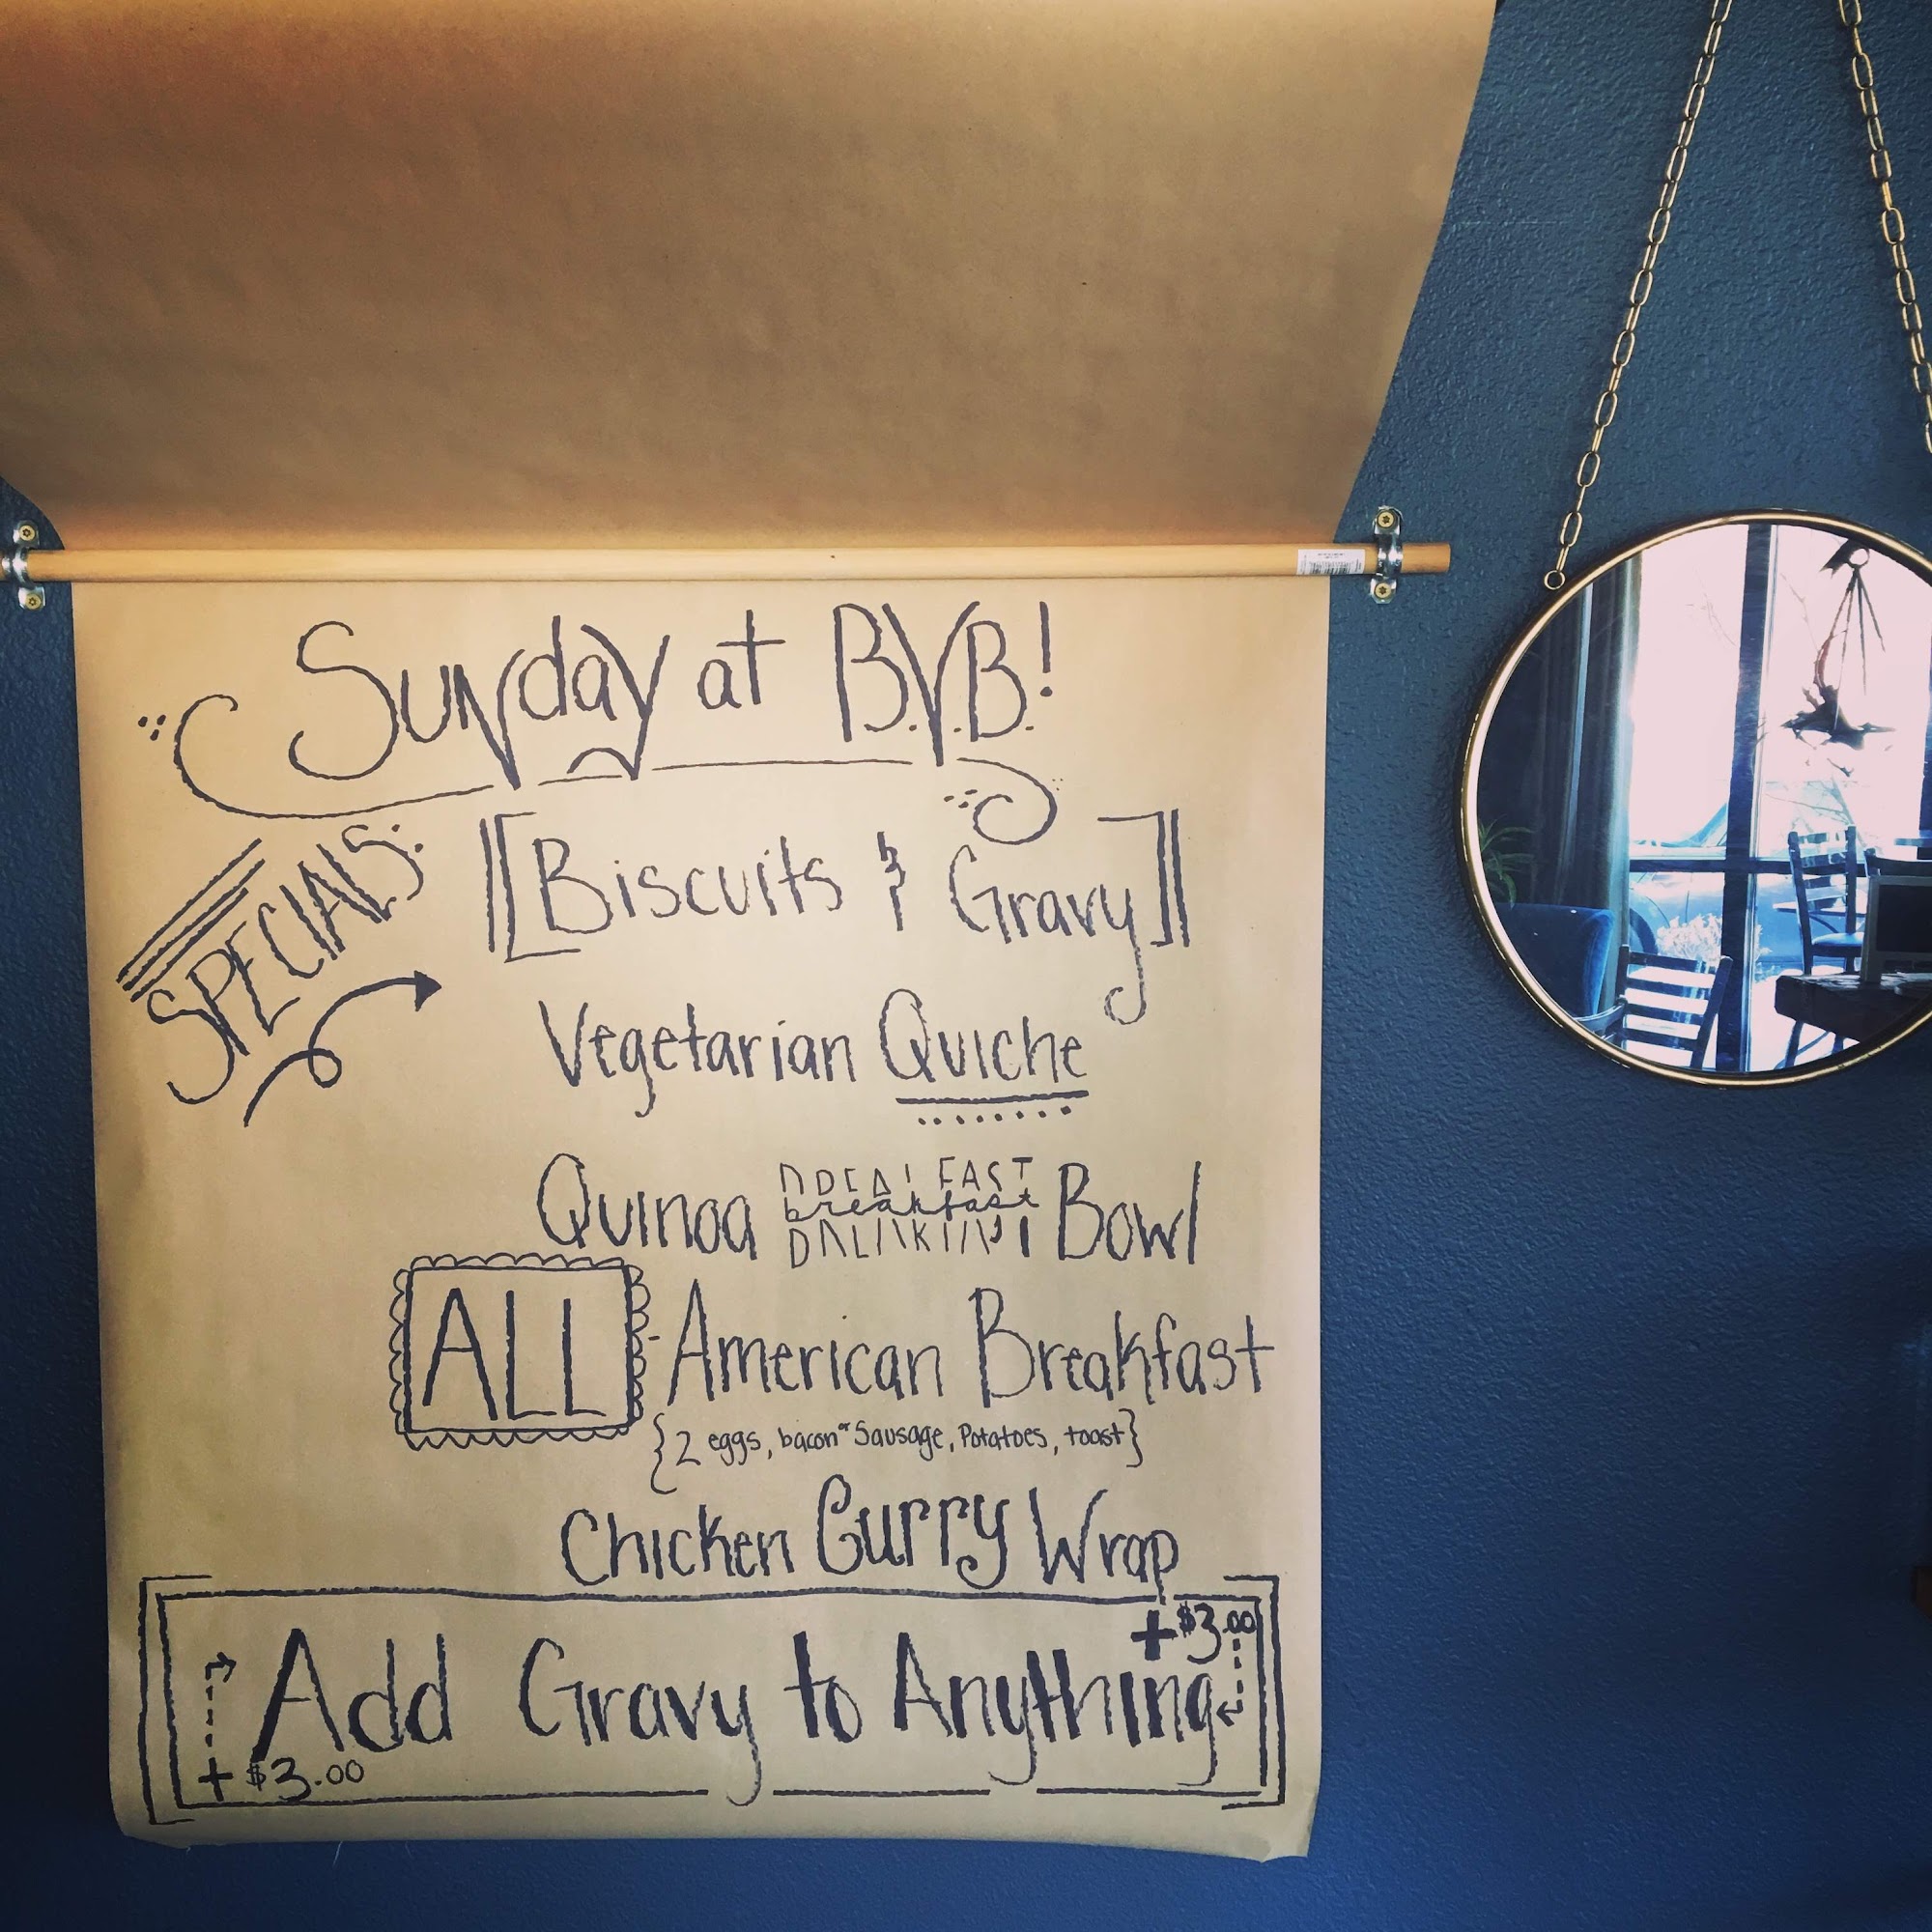 Sunday at B.V.B!
SPECIALS:
[Biscuits & Gravy]
Vegetarian Quiche
Quinoa breakfast Bowl
ALL-American Breakfast
{2 eggs, bacon or Sausage, Potatoes, toast}
Chicken Curry Wrap
+$3.00
Add Gravy to Anything
+$3.00